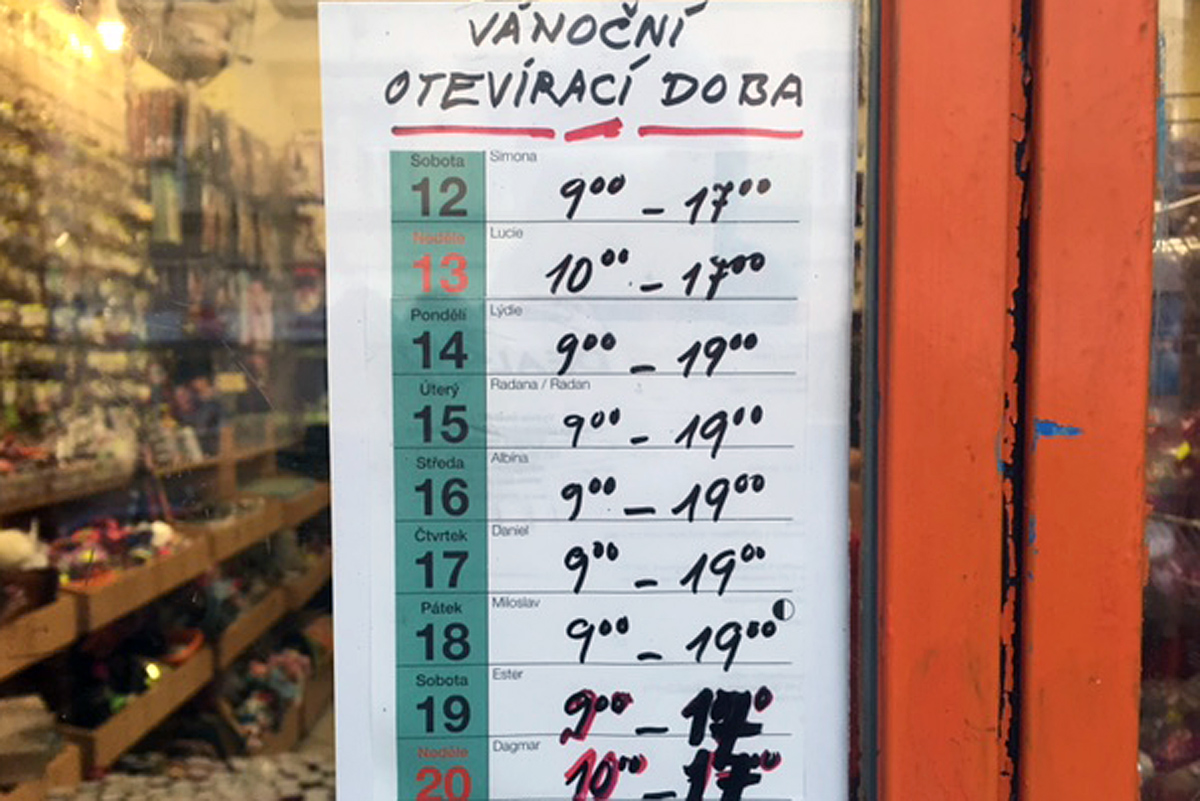 VÁNOČNÍ
OTEVÍRACÍ DOBA
Sobota Simona
12 9⁰⁰ – 17⁰⁰
Neděle Lucie
13 10⁰⁰ – 17⁰⁰
Pondělí Lýdie
14 9⁰⁰ – 19⁰⁰
Úterý Radana / Radan
15 9⁰⁰ – 19⁰⁰
Středa Albína
16 9⁰⁰ – 19⁰⁰
Čtvrtek Daniel
17 9⁰⁰ – 19⁰⁰
Pátek Miloslav
18 9⁰⁰ – 19⁰⁰
Sobota Ester
19 9⁰⁰ –
Neděle Dagmar
20 10⁰⁰ – 17⁰⁰